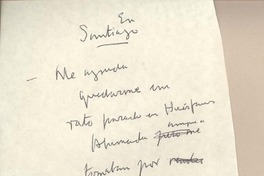 En
Santiago
— Me ayuda
quedarme un
rato parado en Huérfanos
Ahumada aunque
tomaban por